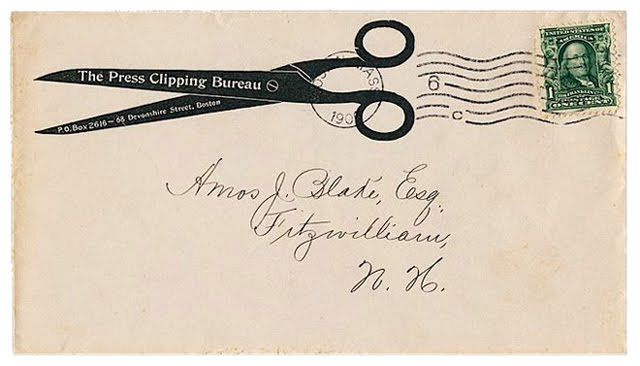 The Press Clipping Bureau
P.O. Box 2616 — 68 Devonshire Street, Boston
MAS
190
6
C
UNITED STATES OF AMERICA
FRANKLIN
1 1
ONE CENT
Amos J. Blake, Esq.
Fitzwilliam,
N. H.